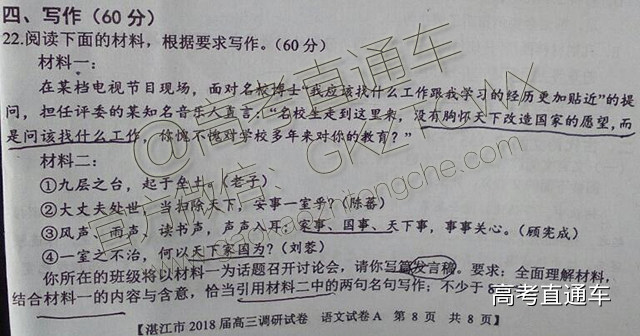 四、写作（60 分）
22.阅读下面的材料，根据要求写作。（60 分）
材料一：
在某档电视节目现场，面对名校博士“我应该找什么工作跟我学习的经历更加贴近”的提
问，担任评委的某知名音乐人直言：“名校生走到这里来，没有胸怀天下改造国家的愿望，而
是问该找什么工作，你愧不愧对学校多年来对你的教育？”
材料二：
①九层之台，起于垒土。（老子）
②大丈夫处世，当扫除天下，安事一室乎？（陈蕃）
③风声、雨声、读书声，声声入耳；家事、国事、天下事，事事关心。（顾宪成）
④一室之不治，何以天下家国为？（刘蓉）
你所在的班级将以材料一为话题召开讨论会，请你写篇发言稿。要求：全面理解材料，
结合材料一的内容与含意，恰当引用材料二中的两句名句写作；不少于8
高考直通车
【湛江市 2018 届高三调研试卷 语文试卷A 第 8 页 共 8 页】
@高考直通车
官方微信：GKZTCWX
gaokaozhitongche.com